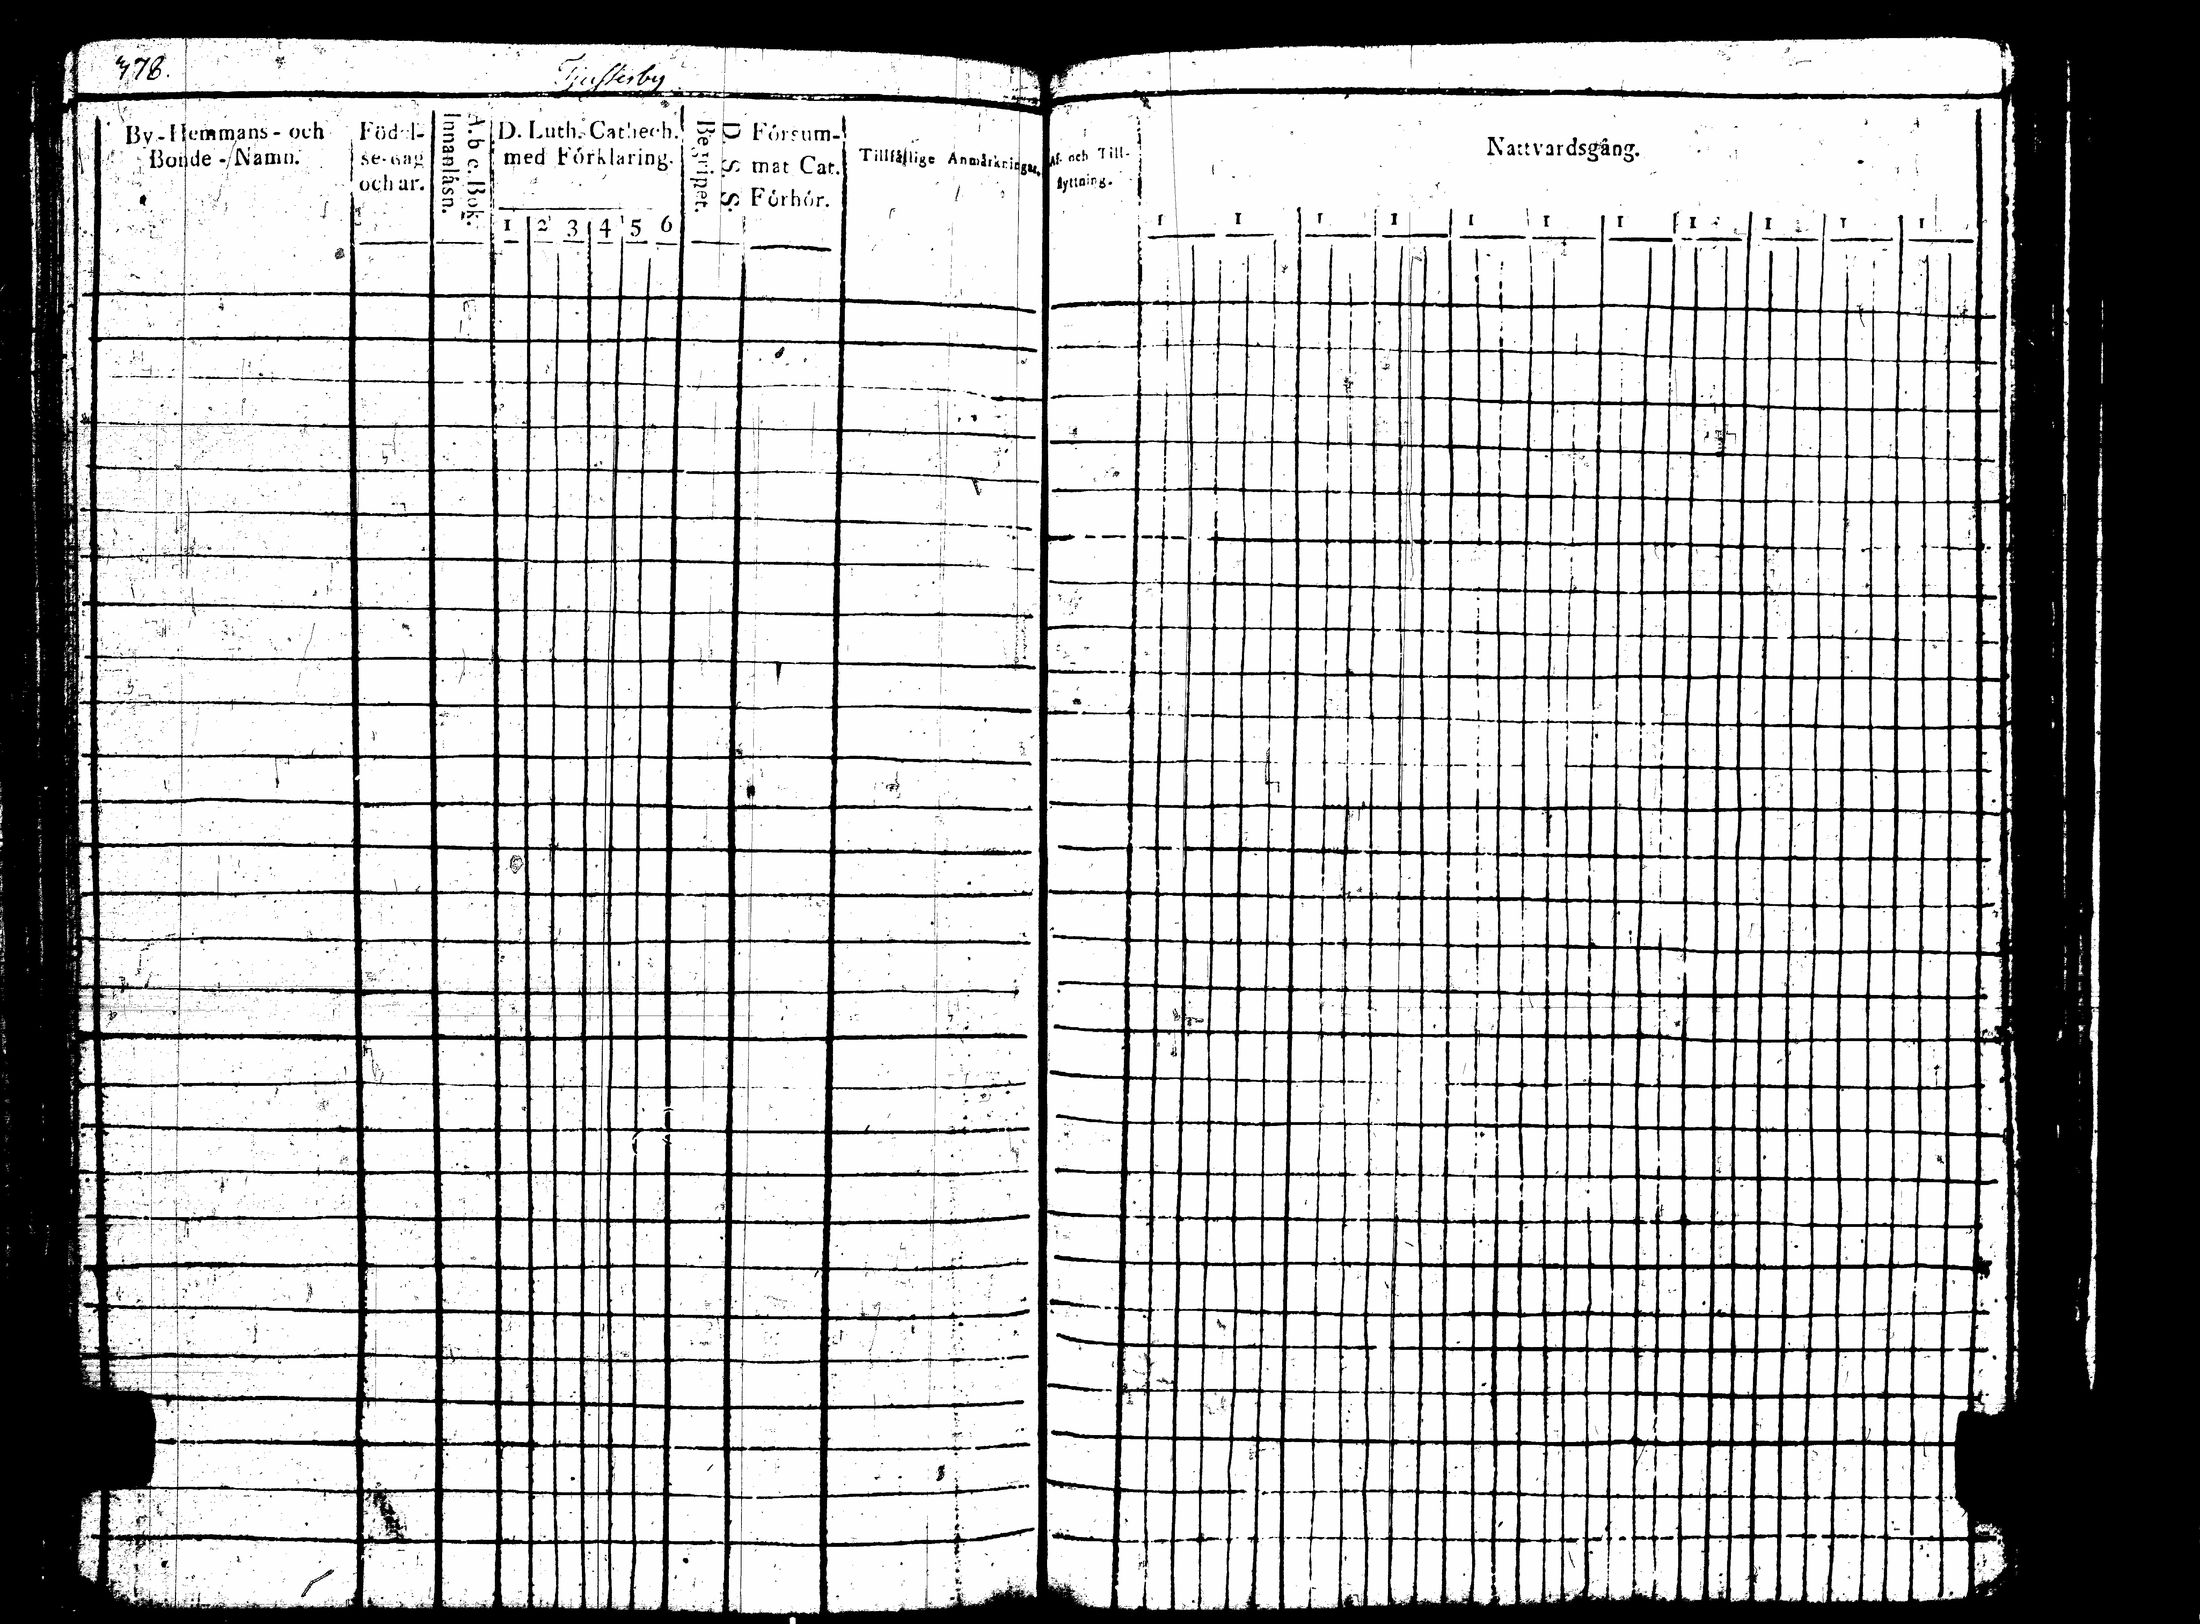 378.
Tjusterby
By-Hemmans- och
Bonde-Namn.
Födel-
se-dag
och år.
Innanläsn.
A. b c. Bok.
D. Luth. Cathech.
med Förklaring.
1 2 3 4 5 6
Begripet.
D. S. S.
Försum-
mat Cat.
Förhör.
Tillfällige Anmärkningar.
Af- och Till-
flyttning.
Nattvardsgång.
1 1 1 1 1 1 1 1 1 1 1